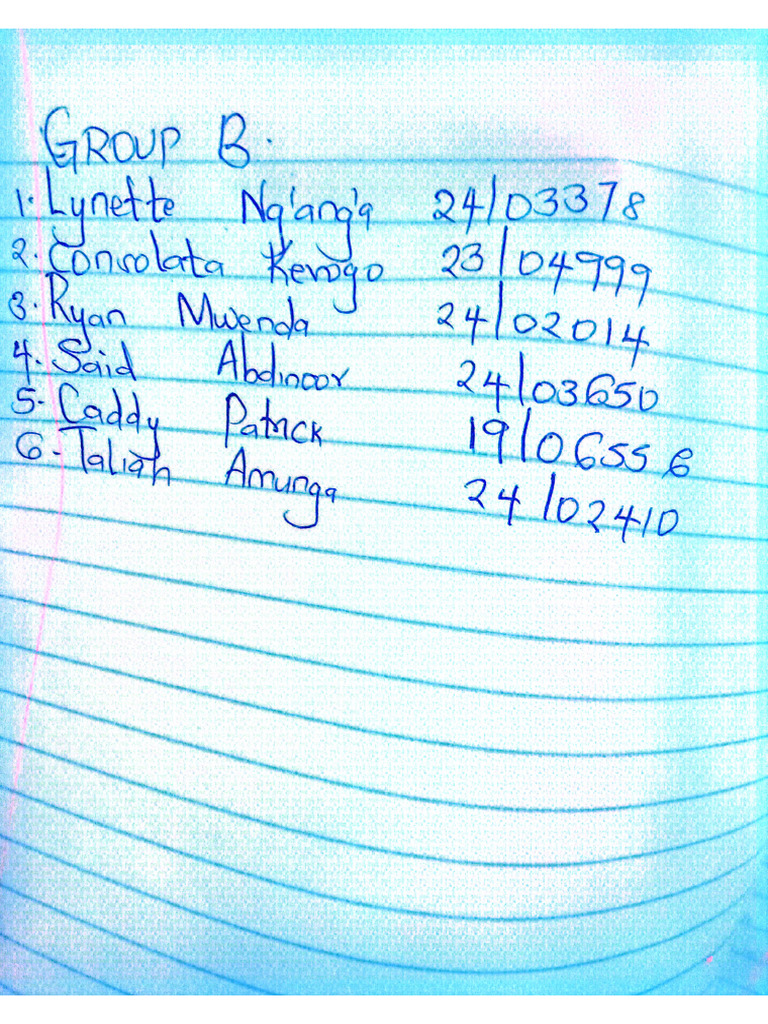 GROUP B.
1. Lynette Ng'ang'a 24/03378
2. Consolata Kerogo 23/04999
3. Ryan Mwenda 24/02014
4. Said Abdinoor 24/03650
5. Caddy Patrick 19/06556
6. Taliah Amunga 24/02410